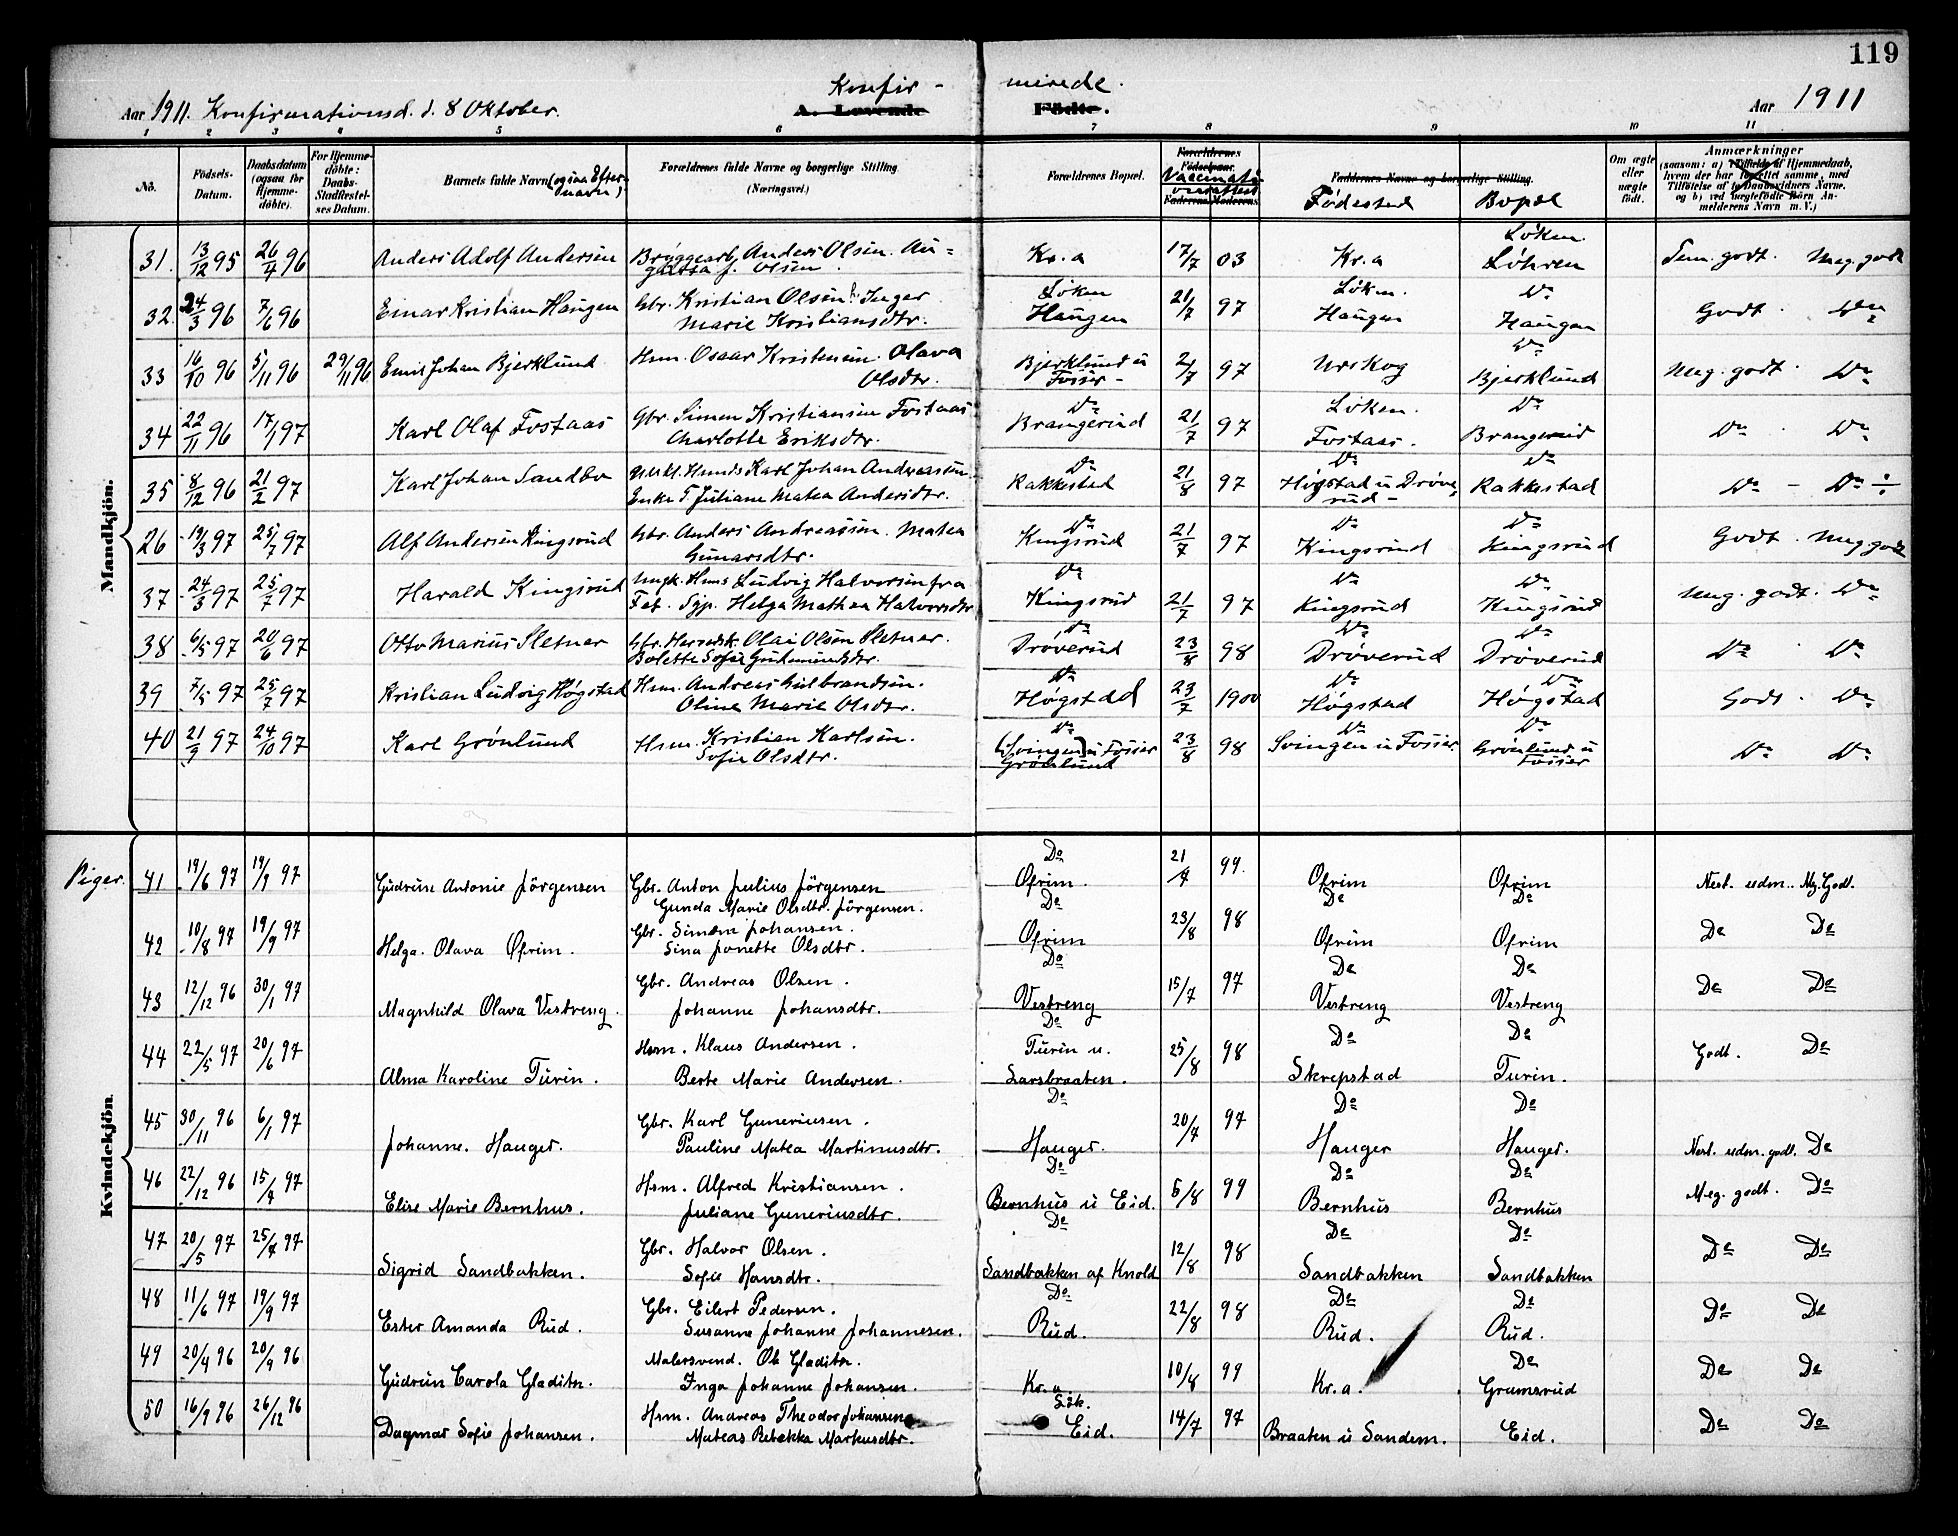 119
Konfir - mirede.
Aar 1911. Konfirmationsd. d. 8 Oktober. A. Levende Födte. Aar 1911
1 2 3 4 5 6 7 8 9 10 11
No. Födsels-Datum. Daabsdatum (ogsaa for Hjemme-döbte). For Hjemme-döbte: Daabs-Stadfæstel-ses Datum. Barnets fulde Navn (ogsaa Efternavn) Forældrenes fulde Navne og borgerlige Stilling (Næringsvei.) Forældrenes Bopæl. Forældrenes Födselsaar. Faderens Moderens Vaccinationsattest Faddernes Navne og borgerlige Stilling. Födested Bopæl Om ægte eller uægte födt. Anmærkninger (saasom: a) Tilfælde af Hjemmedaab, hvem der har forrettet samme, med Tilföielse af to Daabsvidners Navne. og b) ved uægtefödte Börn Anmelderens Navn m. V.)
Mandkjön.
31. 13/12 95 26/4 96 Anders Adolf Andersen Bryggearb. Anders Olsen. Augusta f. Olsen. Kr.a 17/7 03 Kr.a Löken. Löhren Tem. godt. Meg. godt
32. 24/3 96 7/6 96 Einar Kristian Haugen Gbr. Kristian Olsen & Inger Marie Kristiansdtr. Löken Haugen 21/7 97 Löken. Haugen Do Haugen Godt. Do
33 16/10 96 5/11 96 29/11 96 Emil Johan Bjerklund Hsm. Oscar Kristensen. Olava Olsdtr. Bjerklund u Fosser - 2/7 97 Urskog Do Bjerklund Meg. godt. Do
34 22/11 96 17/1 97 Karl Olaf Fostaas Gbr. Simen Kristiansen Fostaas Charlotte Eriksdtr. Do Brangerud 21/7 97 Löken. Fostaas. Do Brangerud Do. Do
35 8/12 96 21/2 97 Karl Johan Sandbo Karl Johan Andreassen. Enke T. Juliane Matea Andersdtr. Do Rakkestad 21/8 97 Do Högstad u Dröverud - Do Rakkestad Do - Do ÷
26 19/3 97 25/7 97 Alf Andersen Kingsrud Gbr. Anders Andreassen. Matea Gunarsdtr. Do Kingsrud 21/7 97 Do Kingsrud Do Kingsrud Godt. Meg godt
37 24/3 97 25/7 97 Harald Kingsrud Ungk. Hms Ludvig Halvorsen fra Fet. Sgp. Helga Mathea Halvorsdtr Do Kingsrud 21/7 97 Do Kingsrud Do Kingsrud Meg. godt. Do
38 6/5 97 20/6 97 Otto Marius Sletner Gbr. Herredsk. Olai Olsen Sletner. Bolette Sofie Gudmundsdtr. Do Dröverud 23/8 98 Do Dröverud Do Dröverud Do. Do
39 7/5 97 25/7 97 Kristian Ludvig Högstad Hsm. Andreas Gulbrandsen. Oline Marie Olsdtr. Do Högstad 23/7 1900 Do Högstad Do Högstad Godt. Do
40 21/9 97 24/10 97 Karl Grönlund Hsm. Kristian Karlsen. Sofie Olsdtr. Do (Svingen) u Fosser Grönlund 23/8 98 Do Svingen u Fosser Do Grönlund u Fosser Do Do
Piger.
Kvindekjön.
41 19/6 97 19/9 97 Gudrun Antonie Jörgensen Gbr. Anton Julius Jörgensen Gunda Marie Olsdtr. Jörgensen. Do Ofrim. 21/7 99. Ofrim Ofrim Nest. udm. Mg. Godt.
42 10/8 97 19/9 97 Helga. Olava Ofrim. Gbr. Simen Johansen. Sina Jonette Olsdtr. Do Ofrim 23/8 98 Do Ofrim Do Ofrim Do Do
43 12/12 96 30/1 97 Magnhild Olava Vestreng. Gbr. Andreas Olsen. Johanne Johansdtr. Do Vestreng 15/7 97 Do Vestreng Do Vestreng Do Do
44 22/5 97 20/6 97 Alma Karoline Turin. Hsm. Klaus Andersen. Berte Marie Andersen. Do Turin u. Larsbraaten. 25/8 98 Do Skrepstad Do Turin. Godt. Do
45 30/11 96 6/1 97 Johanne. Hauger. Gbr. Karl Guneriusen. Pauline Matea Martinusdtr. Do Hauger. 20/7 97 Do Hauger Do Hauger. Nest. udm. godt. Do
46 22/12 96 15/4 97 Elise Marie Bernhus. Hsm. Alfred Kristiansen. Juliane Guneriusdtr. Do Bernhus u Eid. 5/8 99 Do Bernhus Do Bernhus Meg. godt. Do
47 20/5 97 25/7 97 Sigrid Sandbakken. Gbr. Halvor Olsen. Sofie Hansdtr. Do Sandbakken af Knold 12/8 98 Do Sandbakken Do Sandbakken Do Do
48 11/6 97 19/9 97 Ester Amanda Rud. Gbr. Eilert Pedersen. Susanne Johanne Johannesen. Do Rud. 22/8 98 Do Rud. Do Rud. Do Do
49 20/4 96 20/9 96 Gudrun Carola Gladitn. Malersvend. Ole Gladitn. Inga Johanne Johansen. Kr.a. 10/8 99 Kr.a. Do Gramsrud Do Do
50 16/9 96 26/12 96 Dagmar Sofie Johansen. Hsm. Andreas Theodor Johansen Mateas Rebekka Markusdtr. Lök. Eid. 14/7 97 Braaten u Sandem. Eid. Do Do